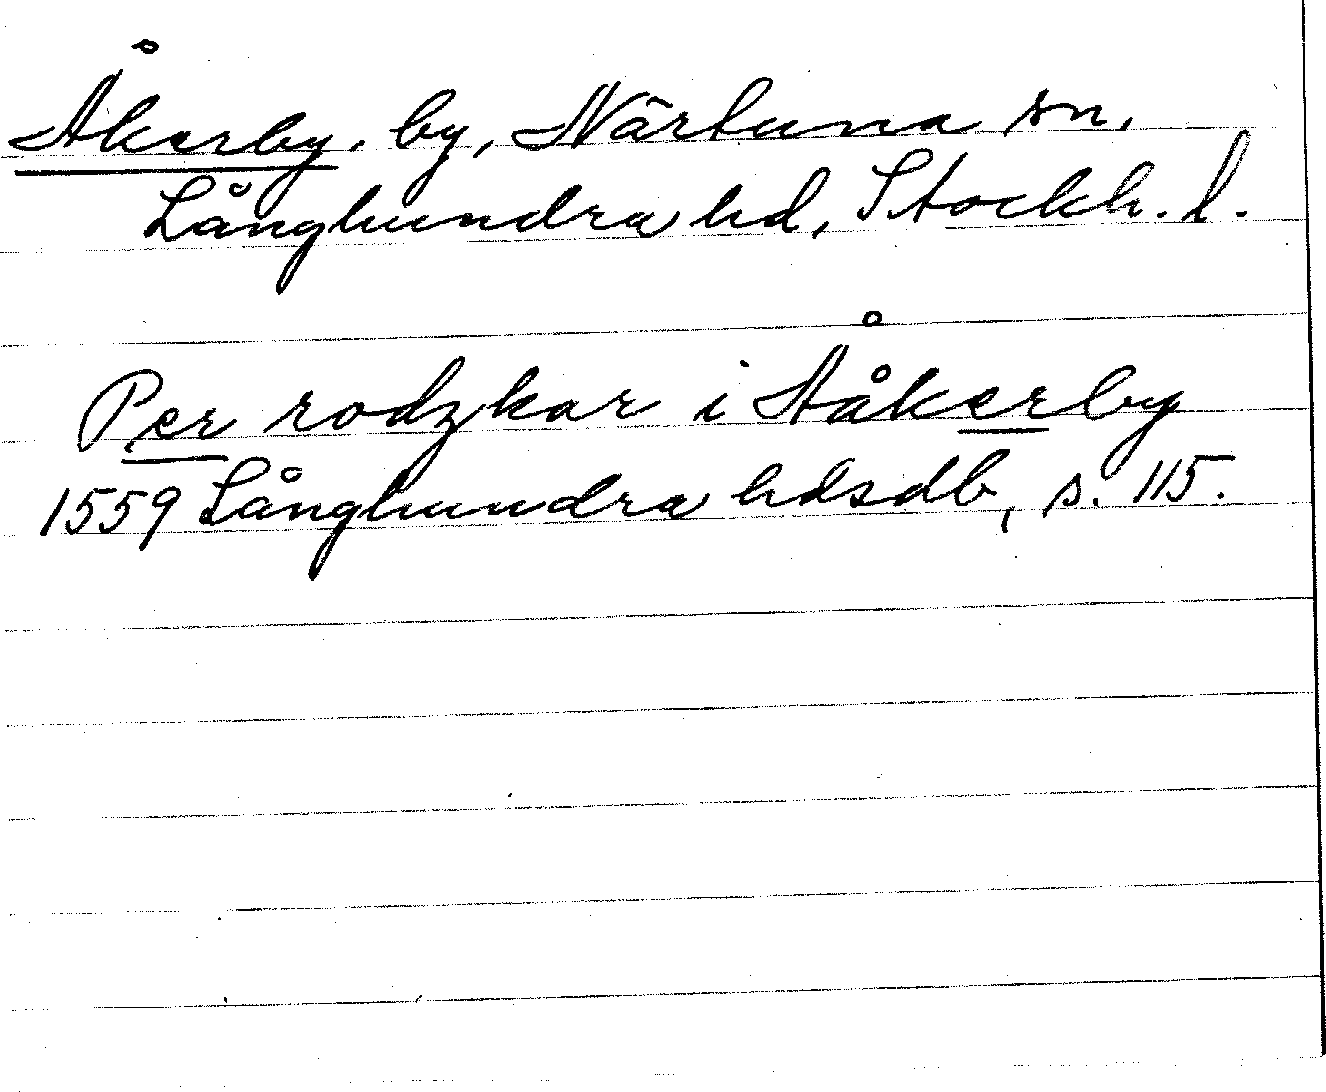 Åkerby, by, Närtuna sn,
Långhundra hd, Stockh. l.
Per rodzkar i Ååkerby
1559 Långhundra hdsdb, s. 115.